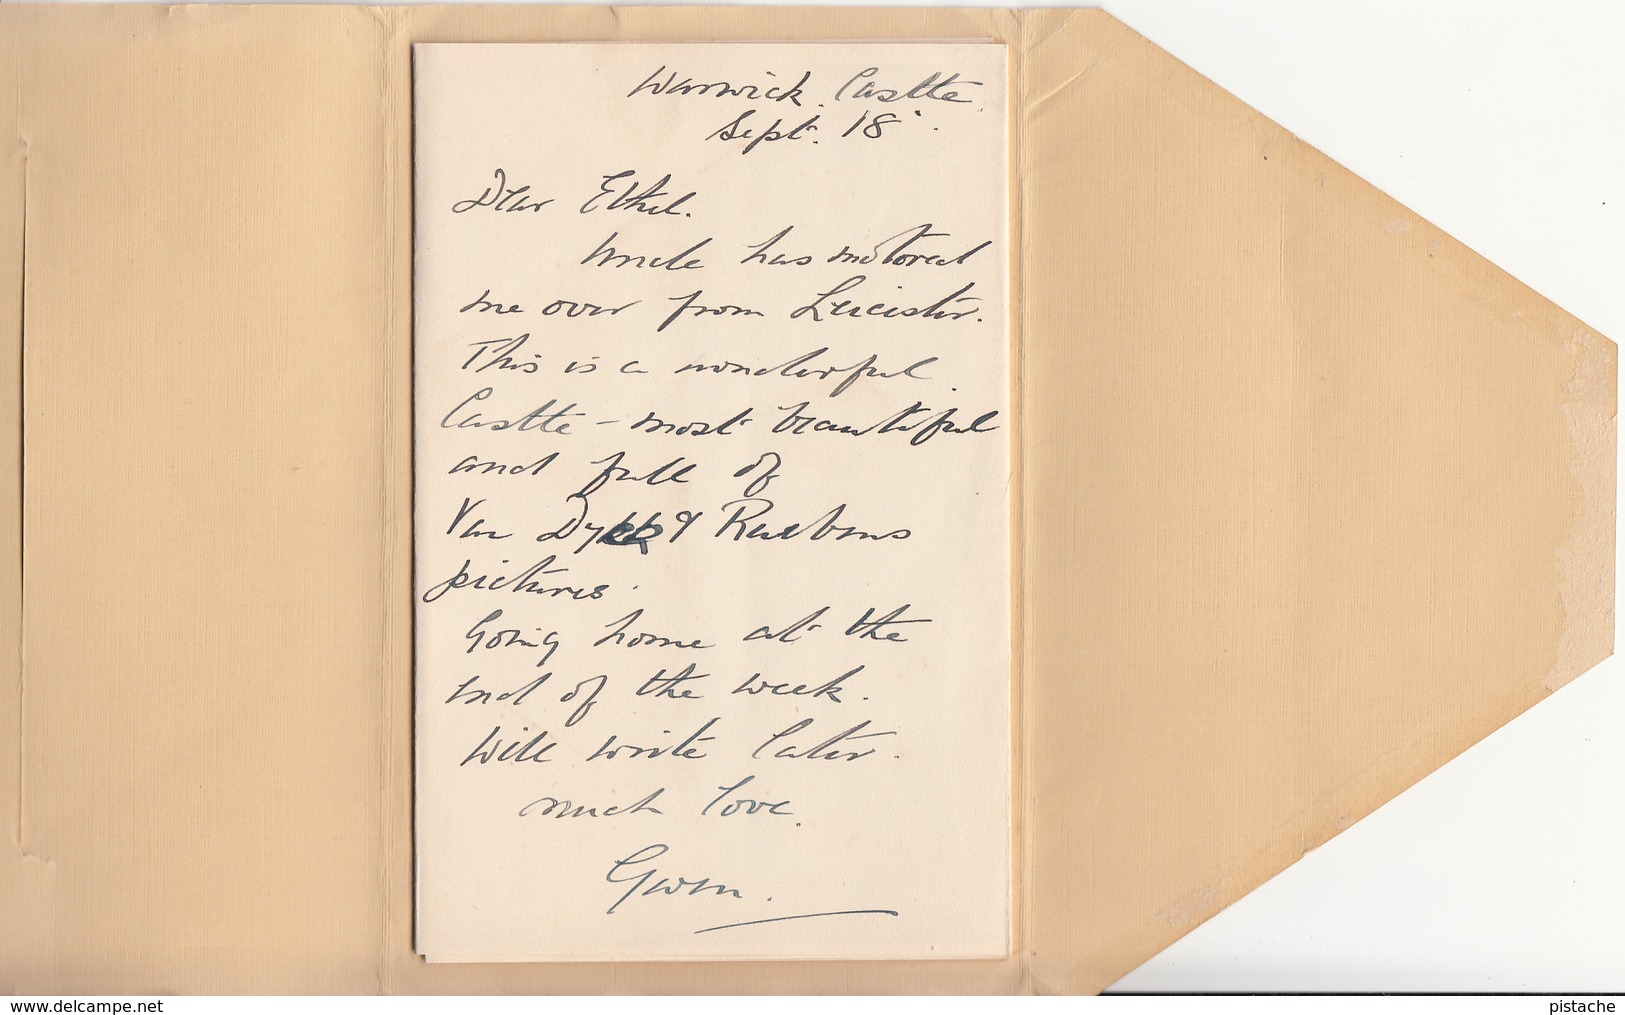 Warwick. Castle.
Sept. 18.
Dear Ethel.
Uncle has motored
me over from Leicester.
This is a wonderful
Castle - most beautiful
and full of
Van Dykk & Raeburns
pictures.
Going home at the
end of the week.
Will write later.
much love.
Gwen.
www.delcampe.net
pistache